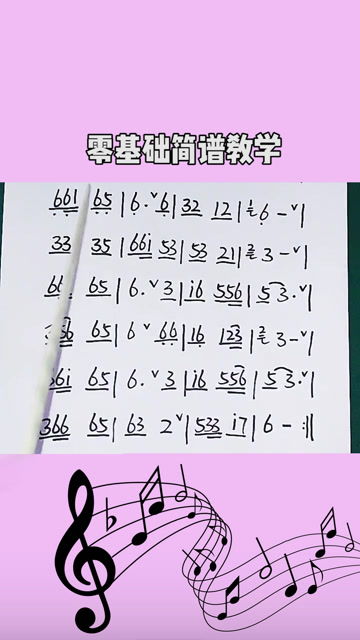 零基础简谱教学
661 65 | 6· ˅6 | 32 12 | 6 – ˅ |
33 35 | 66i 53 | 53 21 | 3 – ˅ |
65 | 6· ˅3 | i6 556 | 5 3· ˅ |
65 | 6 ˅ 66 | 16 123 | 3 – ˅ |
65 | 6· ˅3 | i6 556 | 5 3· ˅ |
366 65 | 63 2˅ | 533 i7 | 6 – :‖